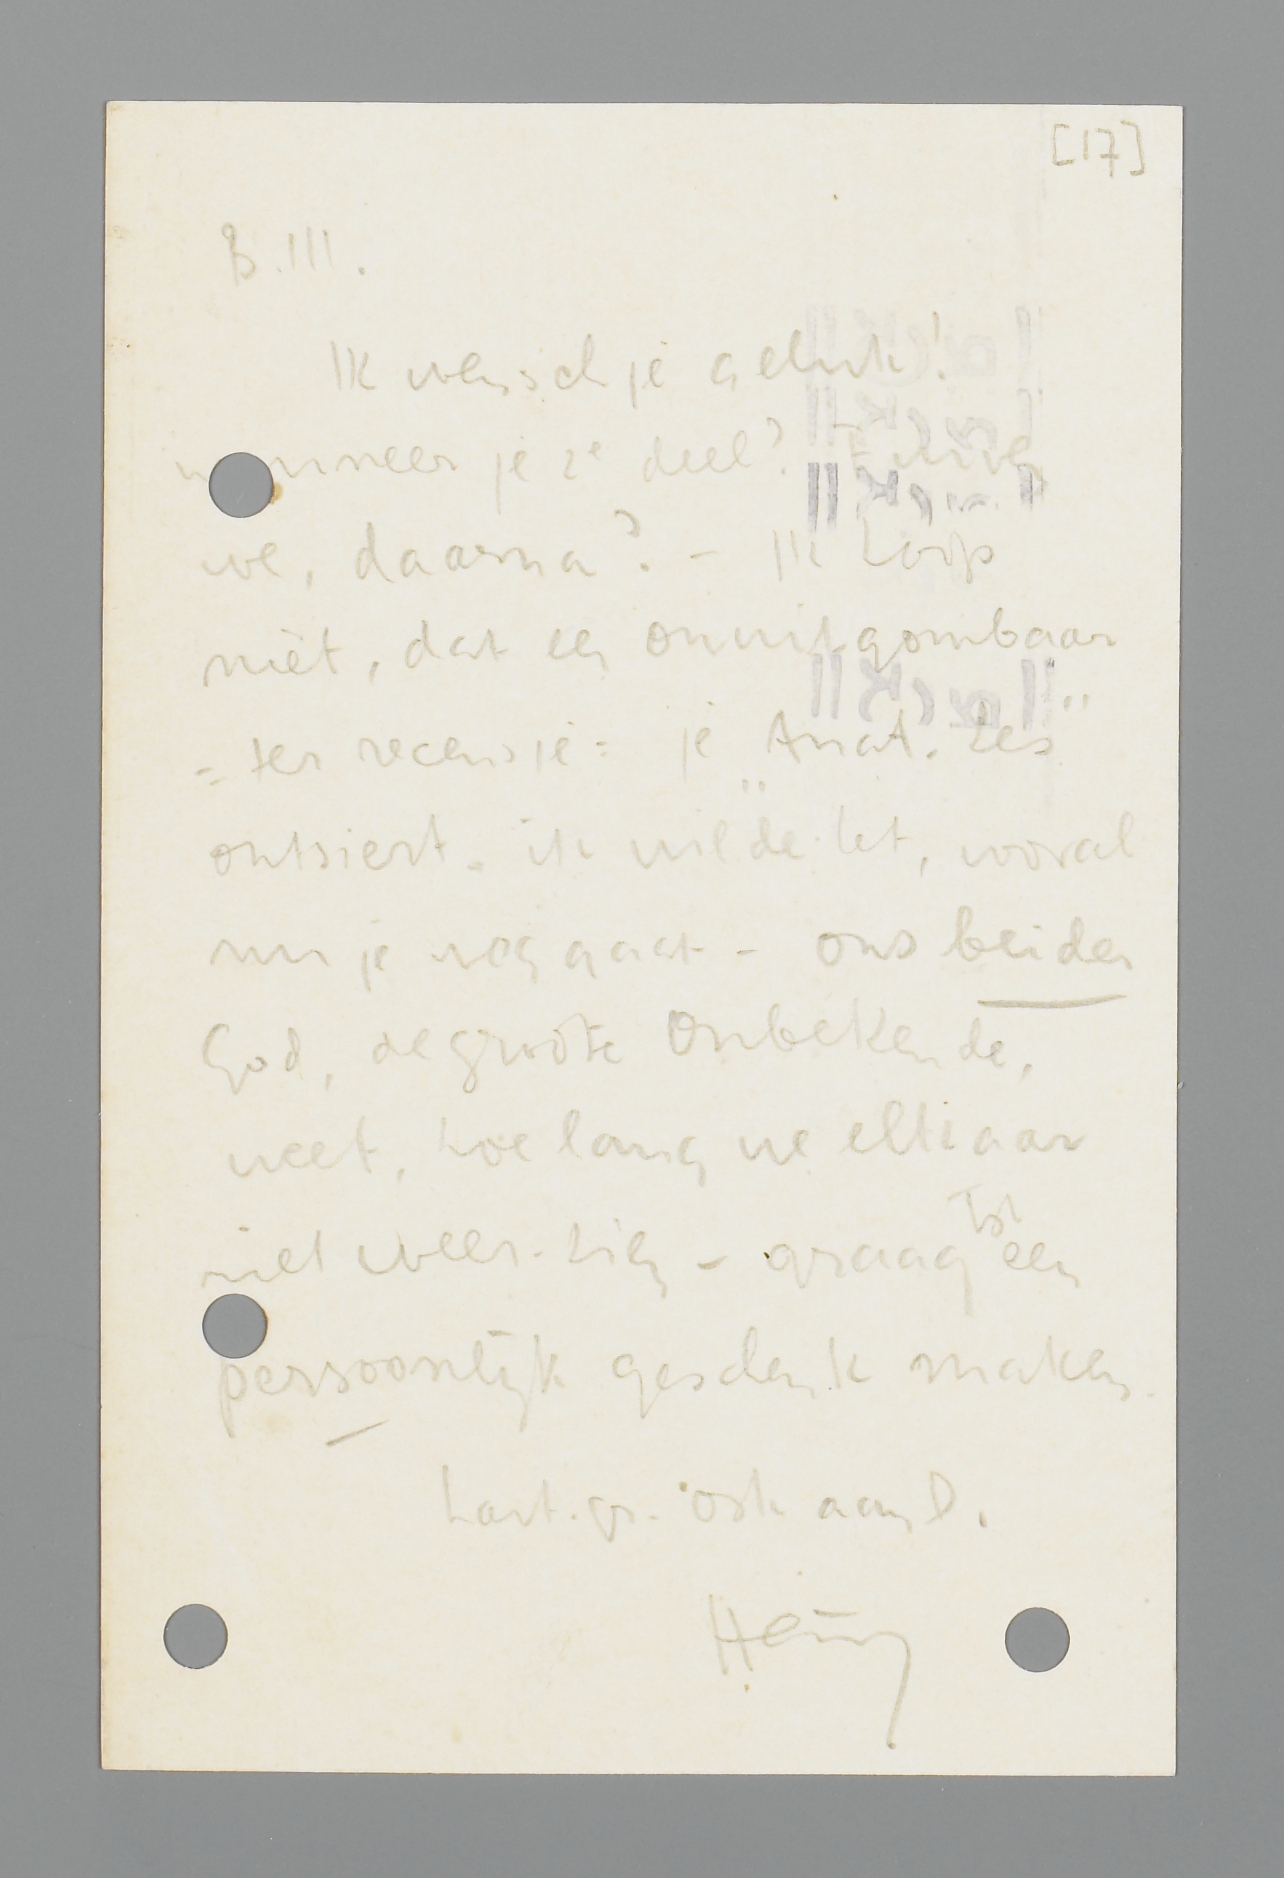 [17]
B.III.
Ik wensch je geluk!
wanneer je 2e deel?
we, daarna? - Ik hoop
niet, dat een onuitgombaar
= ter recensie = je "Anat. Les"
ontsiert. ik wilde het, vooral
nu je weg gaat - ons beider
God, de groote Onbekende,
weet, hoe lang we elkaar
niet weer-zien - graag tot een
persoonlijk geschenk maken.
Hart. gr. ook aan D.
Henny